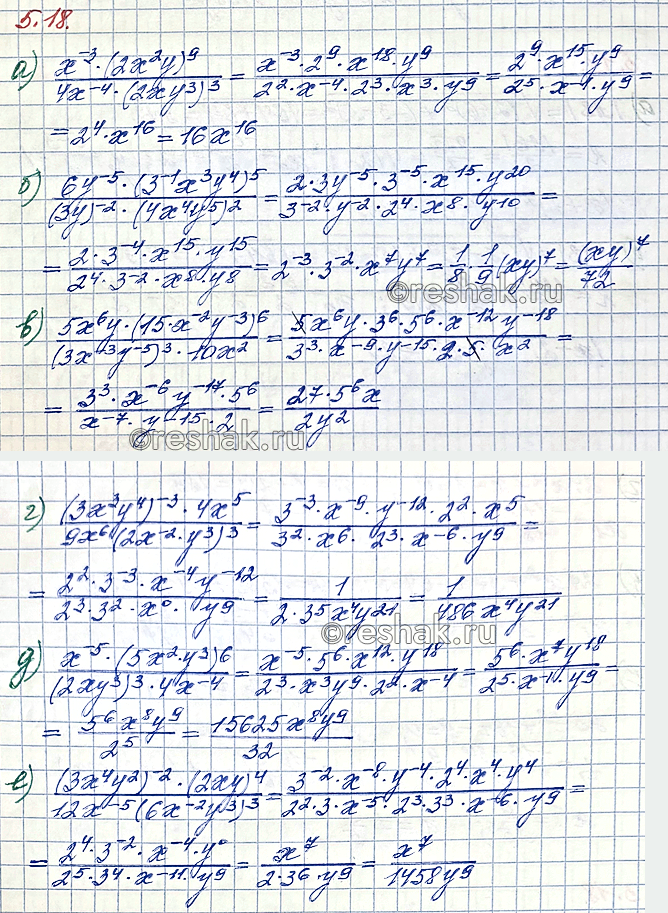 5.18.
а) x^-3·(2x^2y)^9 / 4x^-4·(2xy^3)^3 = x^-3·2^9·x^18·y^9 / 2^2·x^-4·2^3·x^3·y^9 = 2^9·x^15·y^9 / 2^5·x^-1·y^9 =
= 2^4·x^16 = 16x^16
б) 6y^-5·(3^-1x^3y^4)^5 / (3y)^-2·(4x^4y^5)^2 = 2·3y^-5·3^-5·x^15·y^20 / 3^-2·y^-2·2^4·x^8·y^10 =
= 2·3^-4·x^15·y^15 / 2^4·3^-2·x^8·y^8 = 2^-3·3^-2·x^7y^7 = 1/8·1/9(xy)^7 = (xy)^7/72
©reshak.ru
в) 5x^6y·(15·x^-2y^-3)^6 / (3x^-3y^-5)^3·10x^2 = 5x^6y·3^6·5^6·x^-12y^-18 / 3^3·x^-9·y^-15·2·5·x^2 =
= 3^3·x^-6y^-17·5^6 / x^-7·y^-15·2 = 27·5^6x / 2y^2
©reshak.ru
г) (3x^3y^4)^-3·4x^5 / 9x^6·(2x^-2·y^3)^3 = 3^-3·x^-9·y^-12·2^2·x^5 / 3^2·x^6·2^3·x^-6·y^9 =
= 2^2·3^-3·x^-4y^-12 / 2^3·3^2·x^0·y^9 = 1 / 2·3^5x^4y^21 = 1 / 486x^4y^21
©reshak.ru
д) x^-5·(5x^2·y^3)^6 / (2xy^3)^3·4x^-4 = x^-5·5^6·x^12·y^18 / 2^3·x^3y^9·2^2·x^-4 = 5^6·x^7y^18 / 2^5·x^-1·y^9 =
= 5^6x^8y^9 / 2^5 = 15625x^8y^9 / 32
е) (3x^4y^2)^-2·(2xy)^4 / 12x^-5(6x^-2y^3)^3 = 3^-2·x^-8·y^-4·2^4·x^4·y^4 / 2^2·3·x^-5·2^3·3^3·x^-6·y^9 =
= 2^4·3^-2·x^-4·y^0 / 2^5·3^4·x^-11·y^9 = x^7 / 2·3^6·y^9 = x^7 / 1458y^9